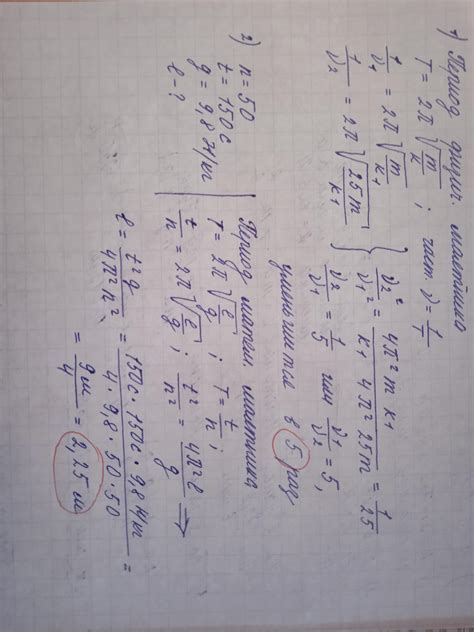 1) Период физич. маятника
T = 2π √(m/k) ; част ν = 1/T
1/ν₁ = 2π √(m/k₁)
1/ν₂ = 2π √(25m/k₁) } ν₂²/ν₁² = 4π² m k₁ / k₁ 4π² 25m = 1/25
ν₂/ν₁ = 1/5 или ν₁/ν₂ = 5,
уменьшится в 5 раз
2) n = 50
t = 150 c
g = 9,8 Н/кг
ℓ - ?
Период матем. маятника
T = 2π √(ℓ/g) ; T = t/n ;
t/n = 2π √(ℓ/g) ; t²/n² = 4π²ℓ/g ⇒
ℓ = t² g / 4π² n² = 150c · 150c · 9,8 Н/кг / 4 · 9,8 · 50 · 50 =
= 9м/4 = 2,25 м